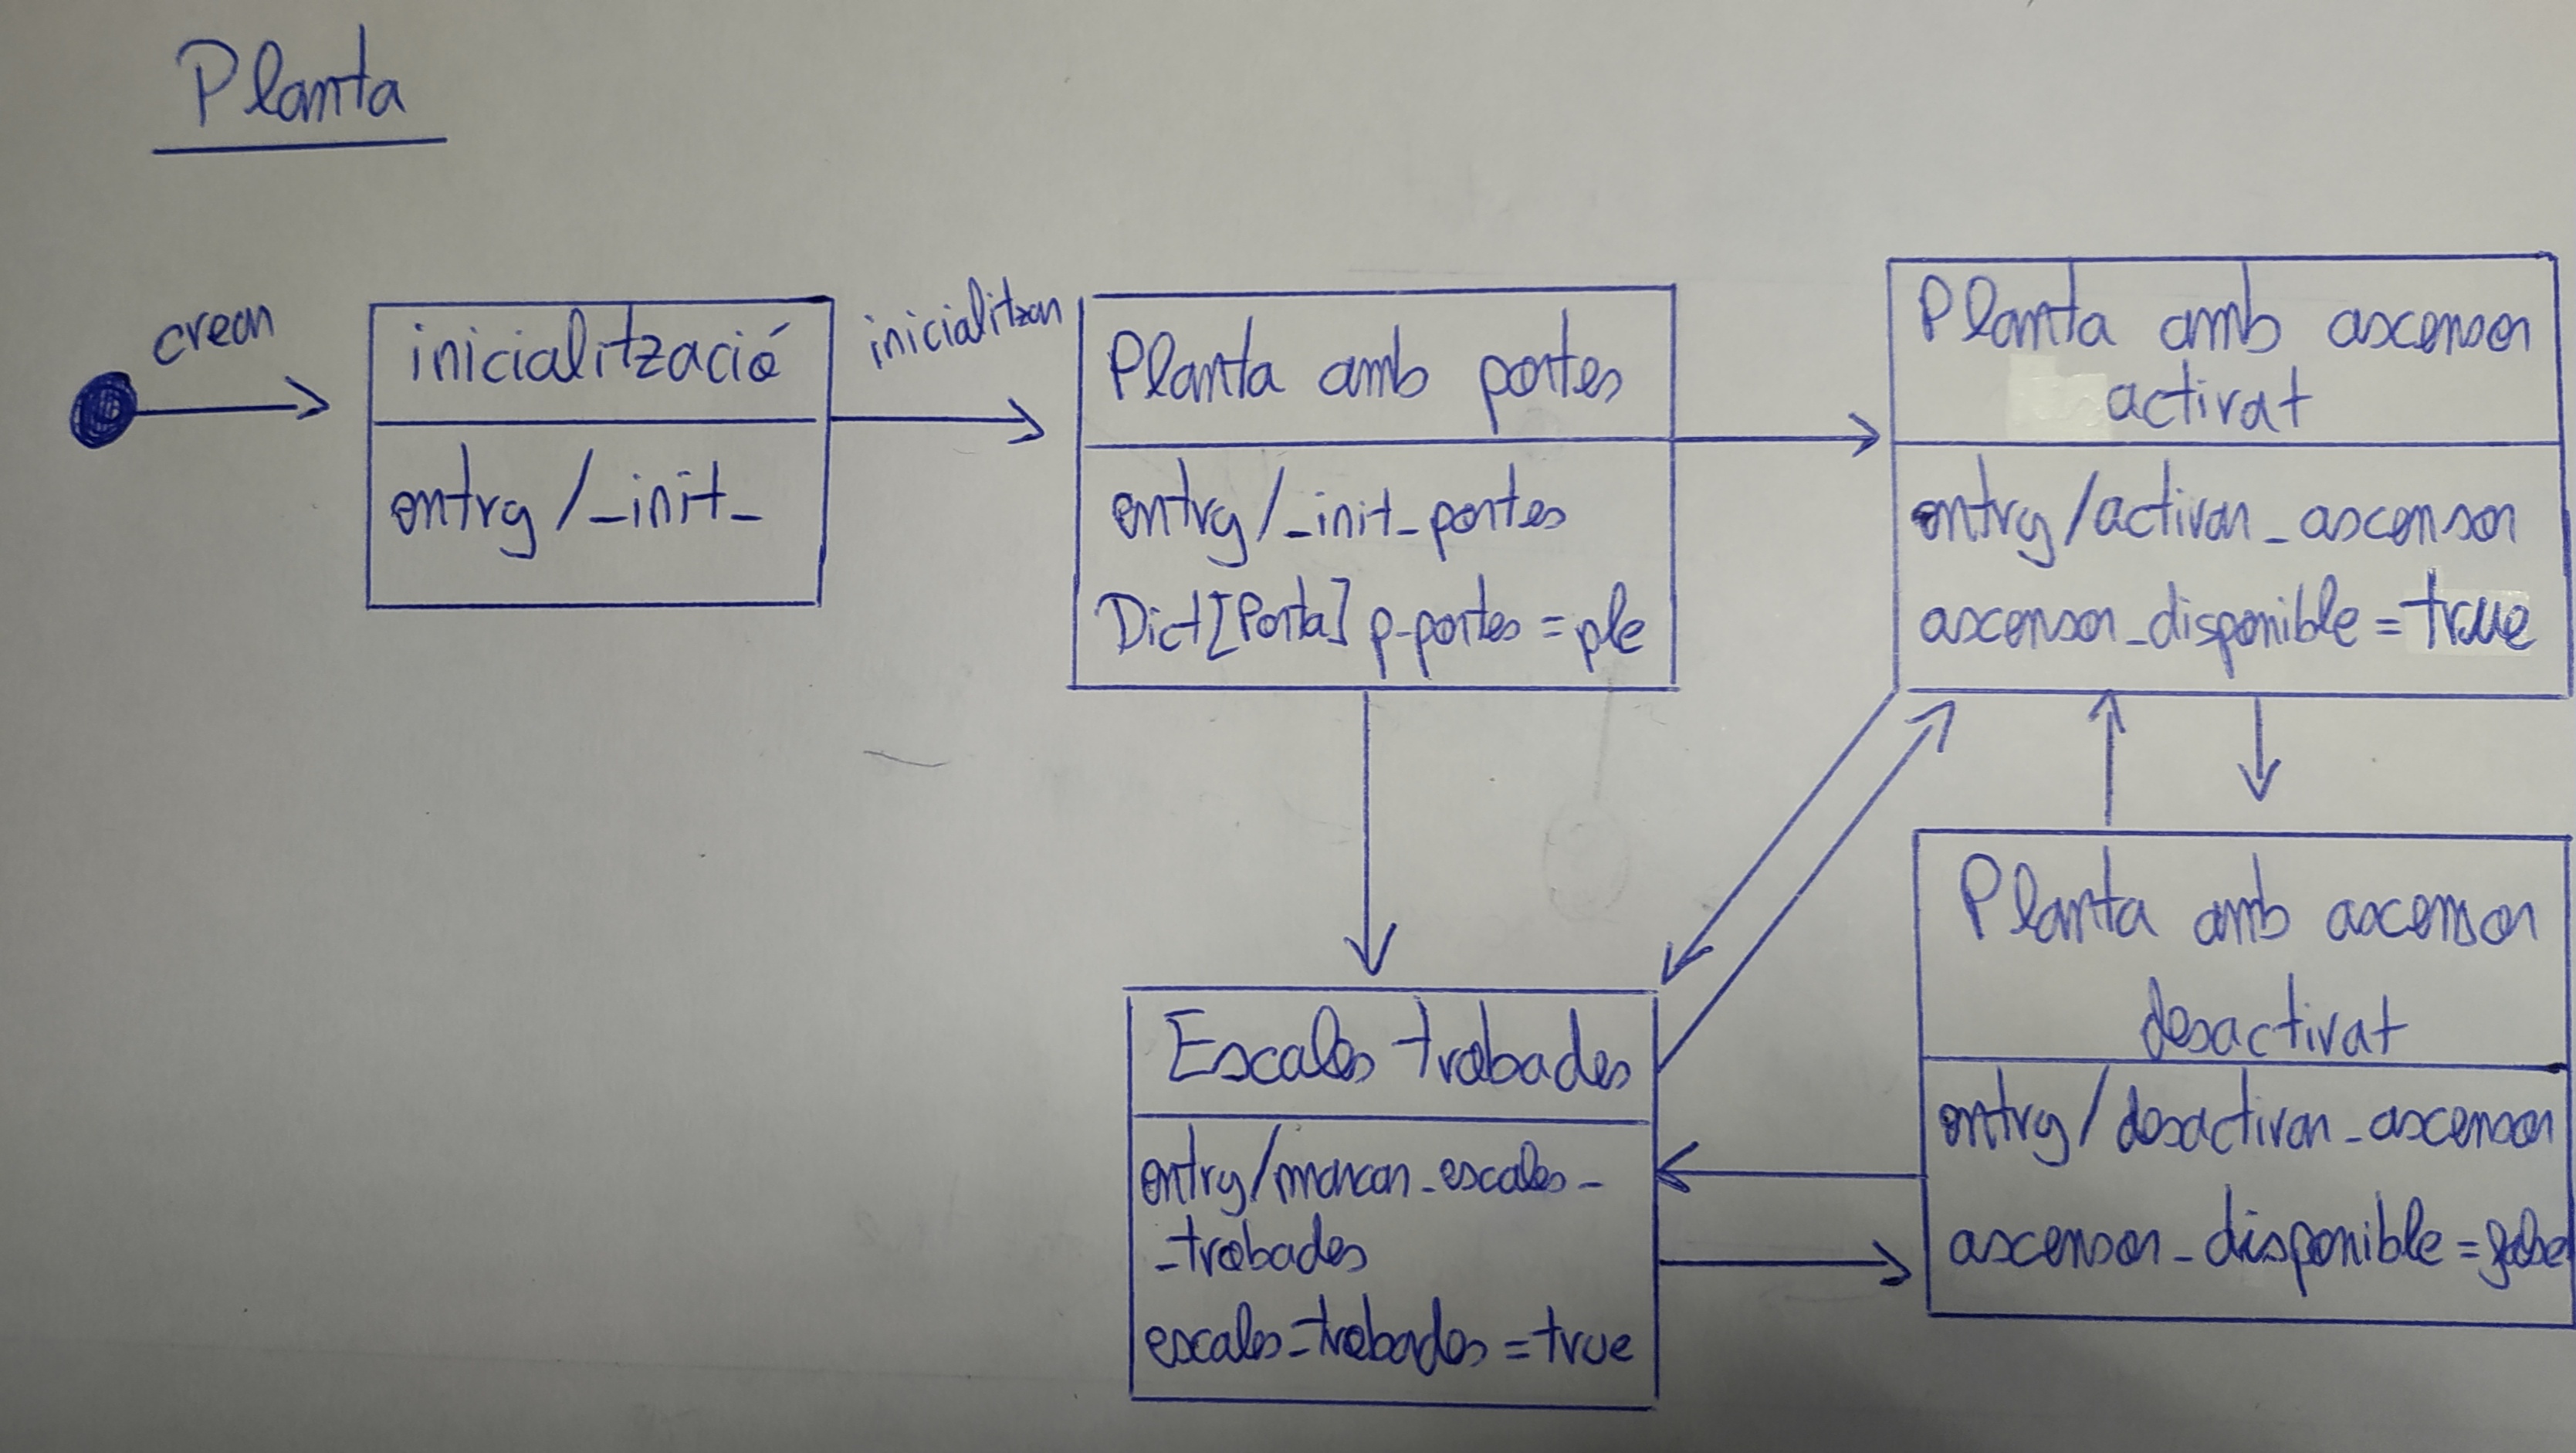 Planta
crear
inicialització
entry /_init_
inicialitzar
Planta amb portes
entry /_init_portes
Dict[Porta] p_portes = ple
Planta amb ascensor
activat
entry /activar_ascensor
ascensor_disponible = true
Escales trobades
entry /marcar_escales_
_trobades
escales_trobades = true
Planta amb ascensor
desactivat
entry / desactivar_ascensor
ascensor_disponible = false